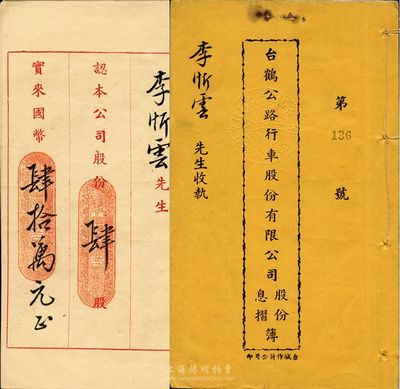 第
136
號
台鶴公路行車股份有限公司
股份簿
息摺
李忻雲
先生收執
台城作新公司印
李忻雲
先生
認本公司股份
肆
股
實來國幣
肆拾萬元正
上海陽明拍賣